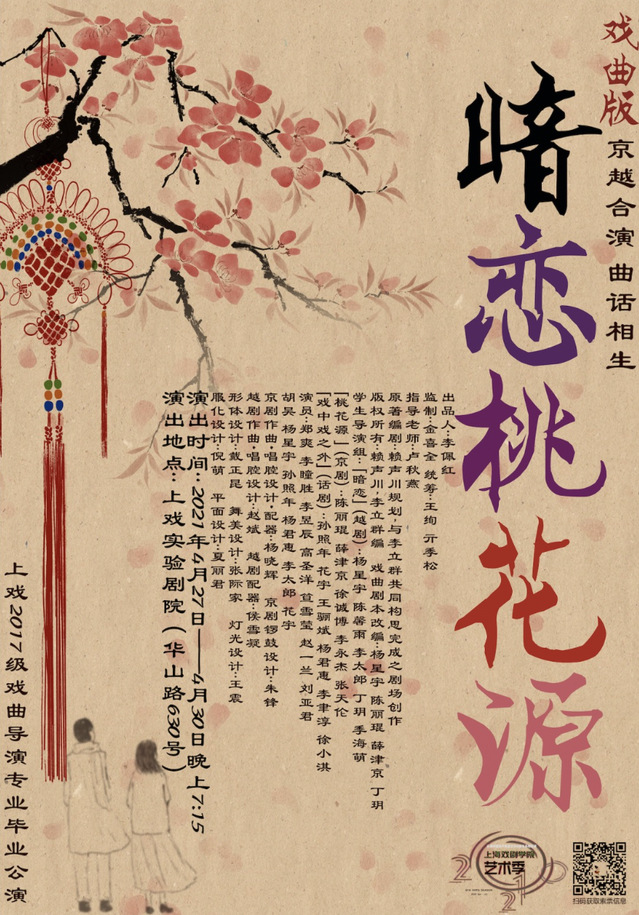 戏曲版 京越合演 曲话相生
暗恋桃花源
出品人：李佩红
监制：金喜全 统筹：王绚 亓季松
指导老师：卢秋燕
原著编剧赖声川规划，与李立群共同构思完成之剧场创作
版权所有：赖声川，李立群编 戏曲剧本改编：杨星宇 陈丽琨 薛津京 丁玥
学生导演组：「暗恋」（越剧）：杨星宇 陈馨雨 李太郎 丁玥 季海萌
「桃花源」（京剧）：陈丽琨 薛津京 徐诚博 李永杰 张天伦
「戏中戏之外」（话剧）：孙照年 花宇 王骊斌 杨君惠 李聿淳 徐小淇
演员：郑爽 李瞳胜 李昱辰 高圣洋 笪雪莹 赵一兰 刘亚君
胡昊 杨星宇 孙照年 杨君惠 李太郎 花宇
京剧作曲，唱腔设计，配器：杨晓辉 京剧锣鼓设计：朱锋
越剧作曲，唱腔设计：赵斌 越剧配器：侯雪凝
形体设计：戴正昆 舞美设计：张际家 灯光设计：王震
服化设计：倪萌 平面设计：夏丽君
演出时间：2021年4月27日——4月30日晚上7:15
演出地点：上戏实验剧院（华山路630号）
上戏2017级戏曲导演专业毕业公演
上海戏剧学院
艺术季
2021
扫码获取索票信息